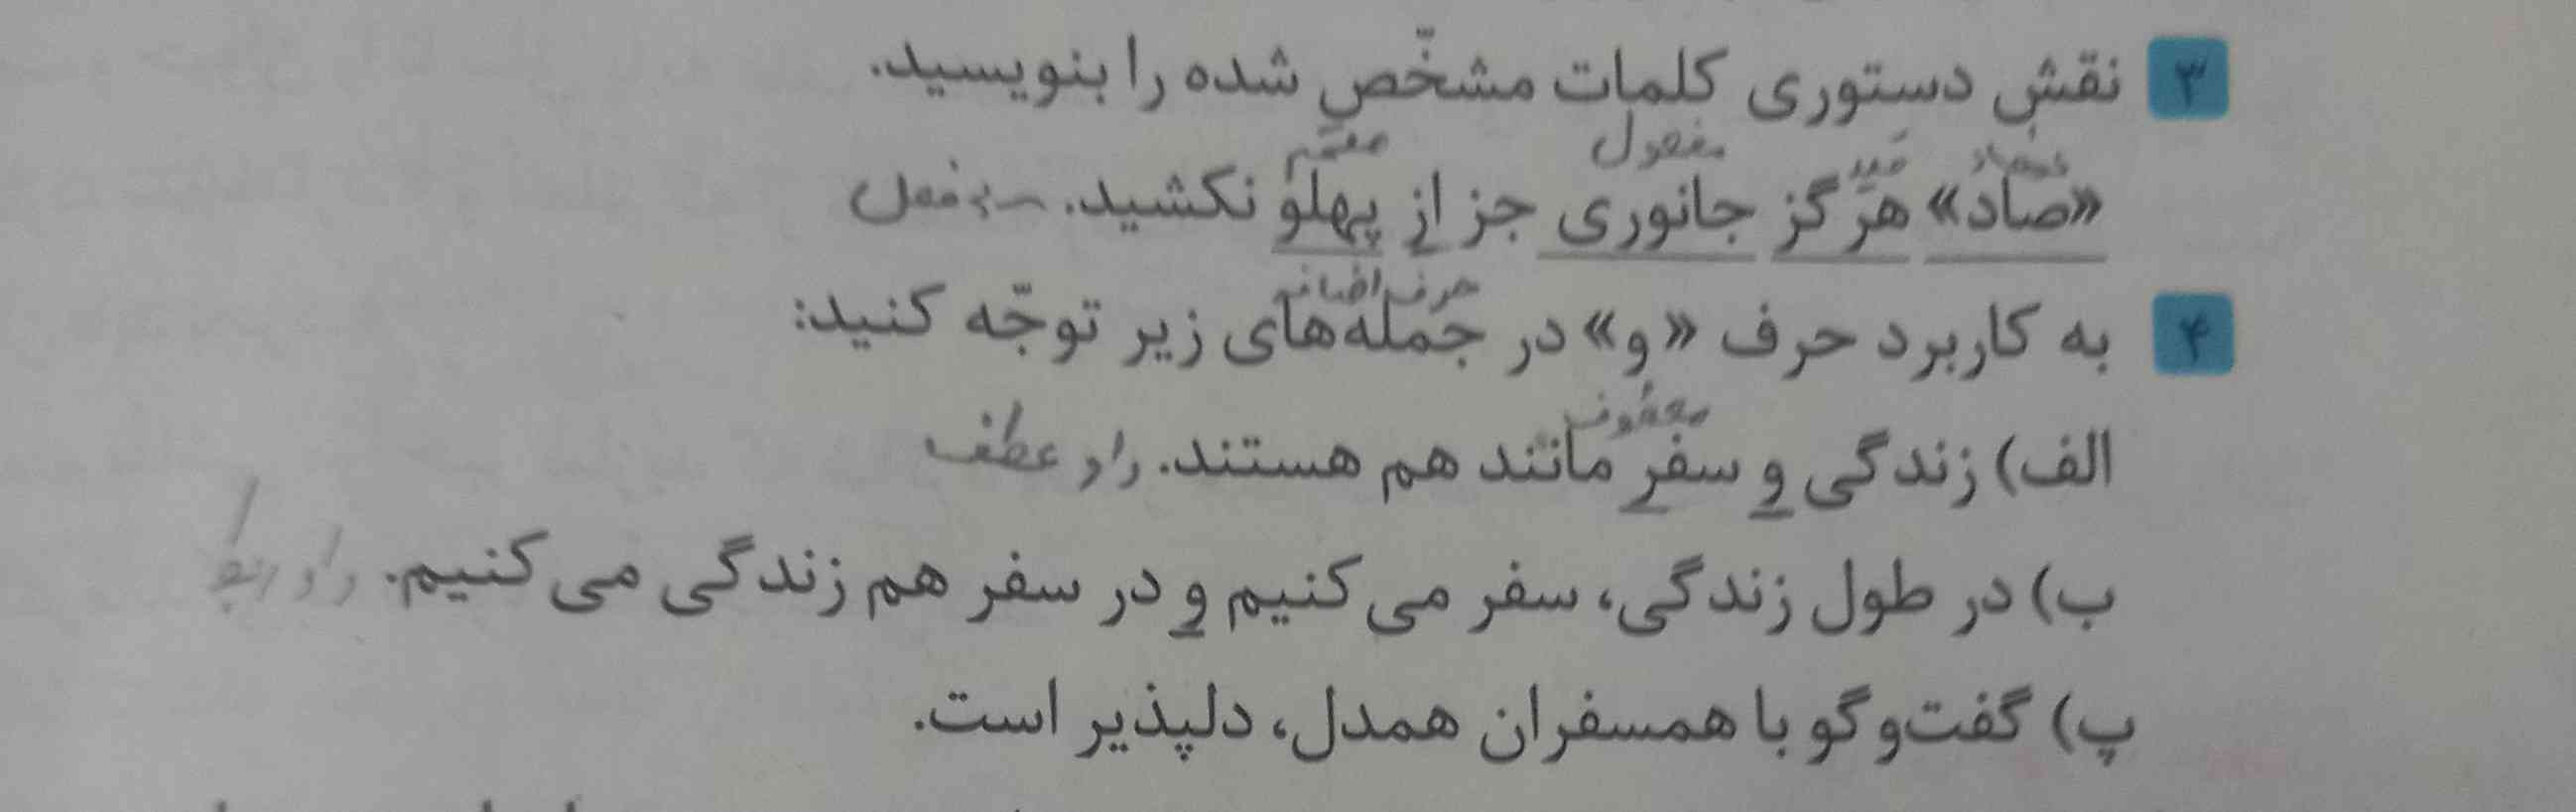 ۳ نقشِ دستوری کلمات مشخّص شده را بنویسید.
نهاد قید مفعول متمم
«صاد» هرگز جانوری جز از پهلو نکشید. ← فعل
حرف اضافه
۴ به کاربرد حرف «و» در جمله‌های زیر توجّه کنید:
معطوف
الف) زندگی و سفر مانند هم هستند. واو عطف
ب) در طول زندگی، سفر می‌کنیم و در سفر هم زندگی می‌کنیم. واو ربط
پ) گفت‌وگو با همسفران همدل، دلپذیر است.